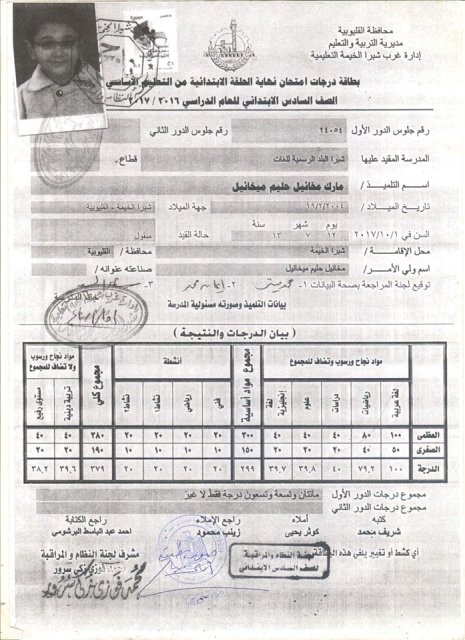 محافظة القليوبية
مديرية التربية والتعليم
إدارة غرب شبرا الخيمة التعليمية
بطاقة درجات امتحان نهاية الحلقة الابتدائية من التعليم الأساسى
الصف السادس الابتدائي للعام الدراسي ٢٠١٦ / ٢٠١٧
رقم جلوس الدور الأول ٢٤٠٥٤ رقم جلوس الدور الثاني
المدرسة المقيد عليها شبرا البلد الرسمية للغات قطاع
اسم التلميذ / مارك مخائيل حليم ميخائيل
تاريخ الميلاد / ١٩/٢/٢٠٠٤ جهة الميلاد شبرا الخيمة - القليوبية
يوم شهر سنة
السن في ٢٠١٧/١٠/١ ١٢ ٧ ١٣ حالة القيد منقول
محل الإقامة / شبرا الخيمة محافظة / القليوبية
اسم ولي الأمر / مخائيل حليم ميخائيل صناعته عنوانه /
توقيع لجنة المراجعة بصحة البيانات ١- ٢- ٣-
بيانات التلميذ وصورته مسئولية المدرسة
( بيان الدرجات والنتيجة )
مواد نجاح ورسوب وتضاف للمجموع مجموع مواد أساسية أنشطة مجموع كلي مواد نجاح ورسوب ولا تضاف للمجموع
لغة عربية رياضيات دراسات علوم لغة إنجليزية فني رياضي نشاط١ نشاط٢ تربية دينية مستوى رفيع
العظمى ١٠٠ ٨٠ ٤٠ ٤٠ ٤٠ ٣٠٠ ٢٠ ٢٠ ٢٠ ٢٠ ٣٨٠ ٤٠ ٤٠
الصغرى ٥٠ ٤٠ ٢٠ ٢٠ ٢٠ ١٥٠ ١٠ ١٠ ١٠ ١٠ ١٩٠ ٢٠ ٢٠
الدرجة ١٠٠ ٧٩,٢ ٤٠ ٣٩,٨ ٣٩,٧ ٢٩٩ ٢٠ ٢٠ ٢٠ ٢٠ ٣٧٩ ٣٩,٦ ٣٨,٢
مجموع درجات الدور الأول مائتان وتسعة وتسعون درجة فقط لا غير
مجموع درجات الدور الثاني
كتبه أملاه راجع الإملاء راجع الكتابة
شريف محمد كوثر يحيى زينب محمود احمد عبد الباسط البرشومي
أي كشط أو تغيير يلغي هذه
لجنة النظام والمراقبة
للصف السادس الابتدائي
مشرف لجنة النظام و المراقبة
فوزي زكي سرور